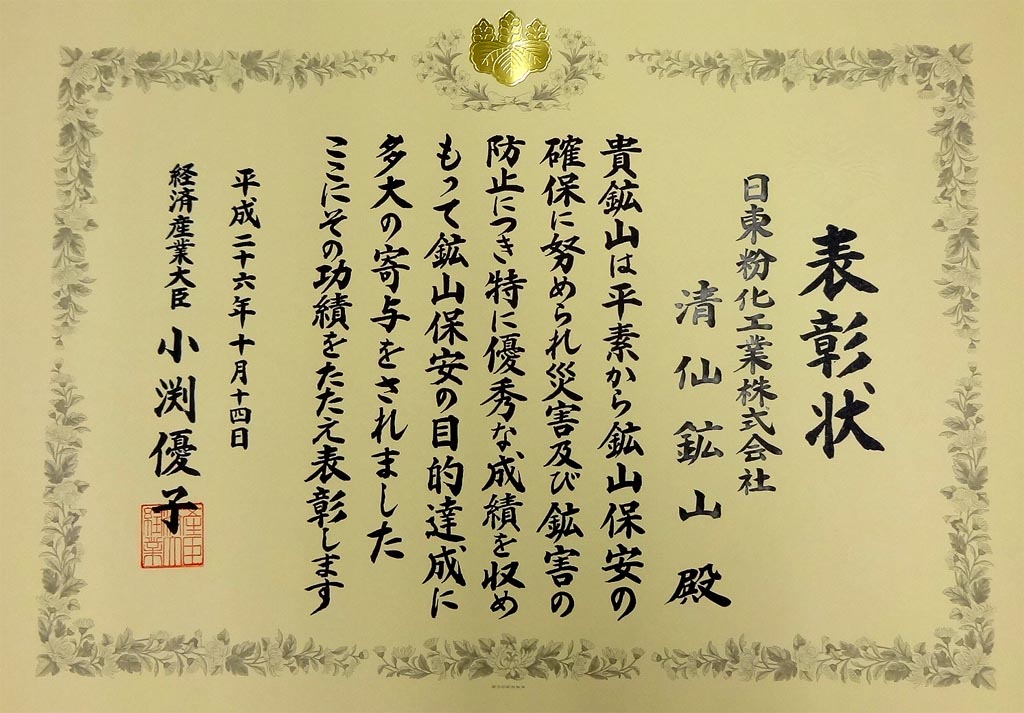 表彰状
日東粉化工業株式会社
清仙鉱山殿
貴鉱山は平素から鉱山保安の
確保に努められ災害及び鉱害の
防止につき特に優秀な成績を収め
もって鉱山保安の目的達成に
多大の寄与をされました
ここにその功績をたたえ表彰します
平成二十六年十月十四日
経済産業大臣 小渕優子